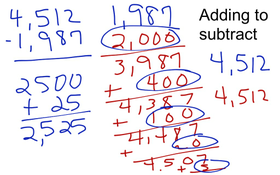 4,512
-1,987
2500
+ 25
2,525
1,987
2,000
3,987
+ 400
4,387
+ 100
4,487
+
4,507
+ 5
Adding to
subtract
4,512
4,512